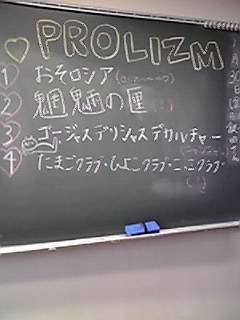 ♡ PROLIZM
① おそロシア
② 魍魎の匣
③ ゴージャスデリシャスデカルチャー
④ たまごクラブ・ひよこクラブ・こっこクラブ
月30日(金)飯田さん